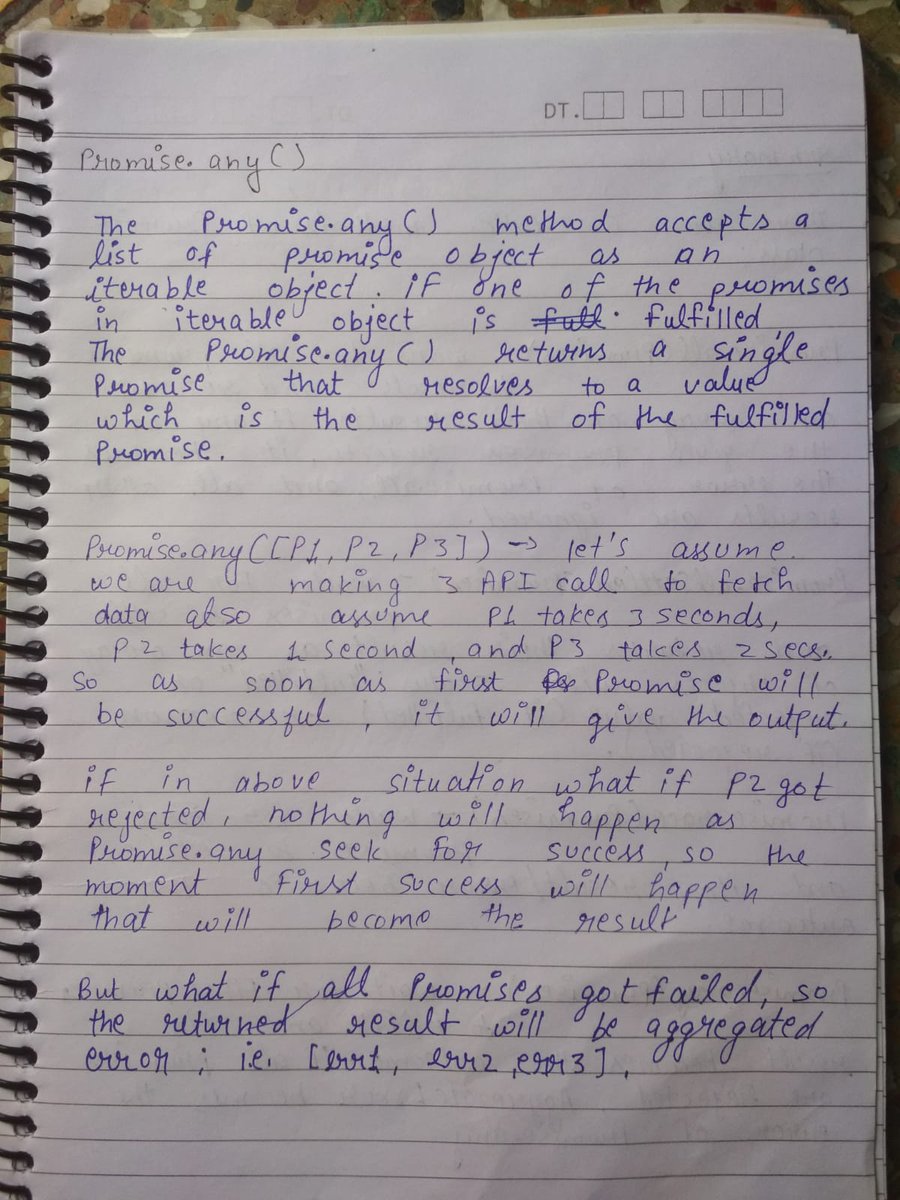 DT.
Promise.any()
The Promise.any() method accepts a
list of promise object as an
iterable object. if one of the promises
in iterable object is full. fulfilled,
The Promise.any() returns a single
Promise that resolves to a value
which is the result of the fulfilled
Promise.
Promise.any([P1, P2, P3]) → let's assume.
we are making 3 API call to fetch
data also assume P1 takes 3 seconds,
P2 takes 1 second, and P3 takes 2 secs.
So as soon as first Promise will
be successful, it will give the output.
if in above situation what if P2 got
rejected, nothing will happen as
Promise.any seek for success, so the
moment first success will happen
that will become the result
But what if all Promises got failed, so
the returned result will be aggregated
error; i.e. [err1, err2, err3].